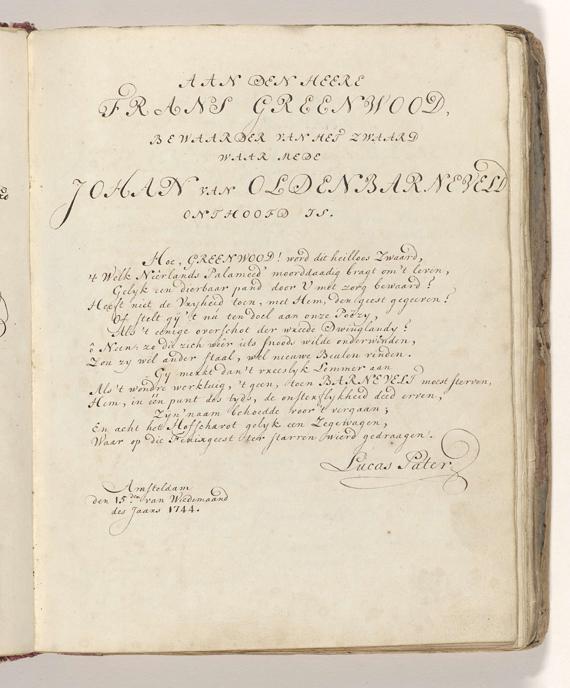 AAN DEN HEERE
FRANS GREENWOOD,
BEWAARDER VAN HET ZWAARD
WAAR MEDE
JOHAN VAN OLDENBARNEVELD
ONTHOOFD IS.
Hoe, GREENWOOD! word dit heilloos Zwaard,
't Welk Neêrlands Palameed' moorddaadig bragt om 't leven,
Gelyk een dierbaar pand door U met zorg bewaard?
Heeft niet de Vryheid toen, met Hem, den geest gegeeven?
Of stelt gy 't nu ten doel aan onze Poëzy,
Als 't eenige overschot der wreede Dwinglandy?
ô Neen: zo die zich weêr iets snoods wilde onderwinden,
Zou zy wel ander staal, wel nieuwe Beulen vinden.
Gy merkt dan 't vreeslyk Lemmer aan
Als 't wondre werktuig, 't geen, toen BARNEVELT moest sterven,
Hem, in één punt des tyds, de onsterflykheid deed erven,
Zyn' naam behoedde voor 't vergaan;
En acht het Hofschavot gelyk een Zegewagen,
Waar op die Fenixgeest ter starren wierd gedraagen.
Lucas Pater
Amsteldam
den 15.den van Wiedemaand
des Jaars 1744.